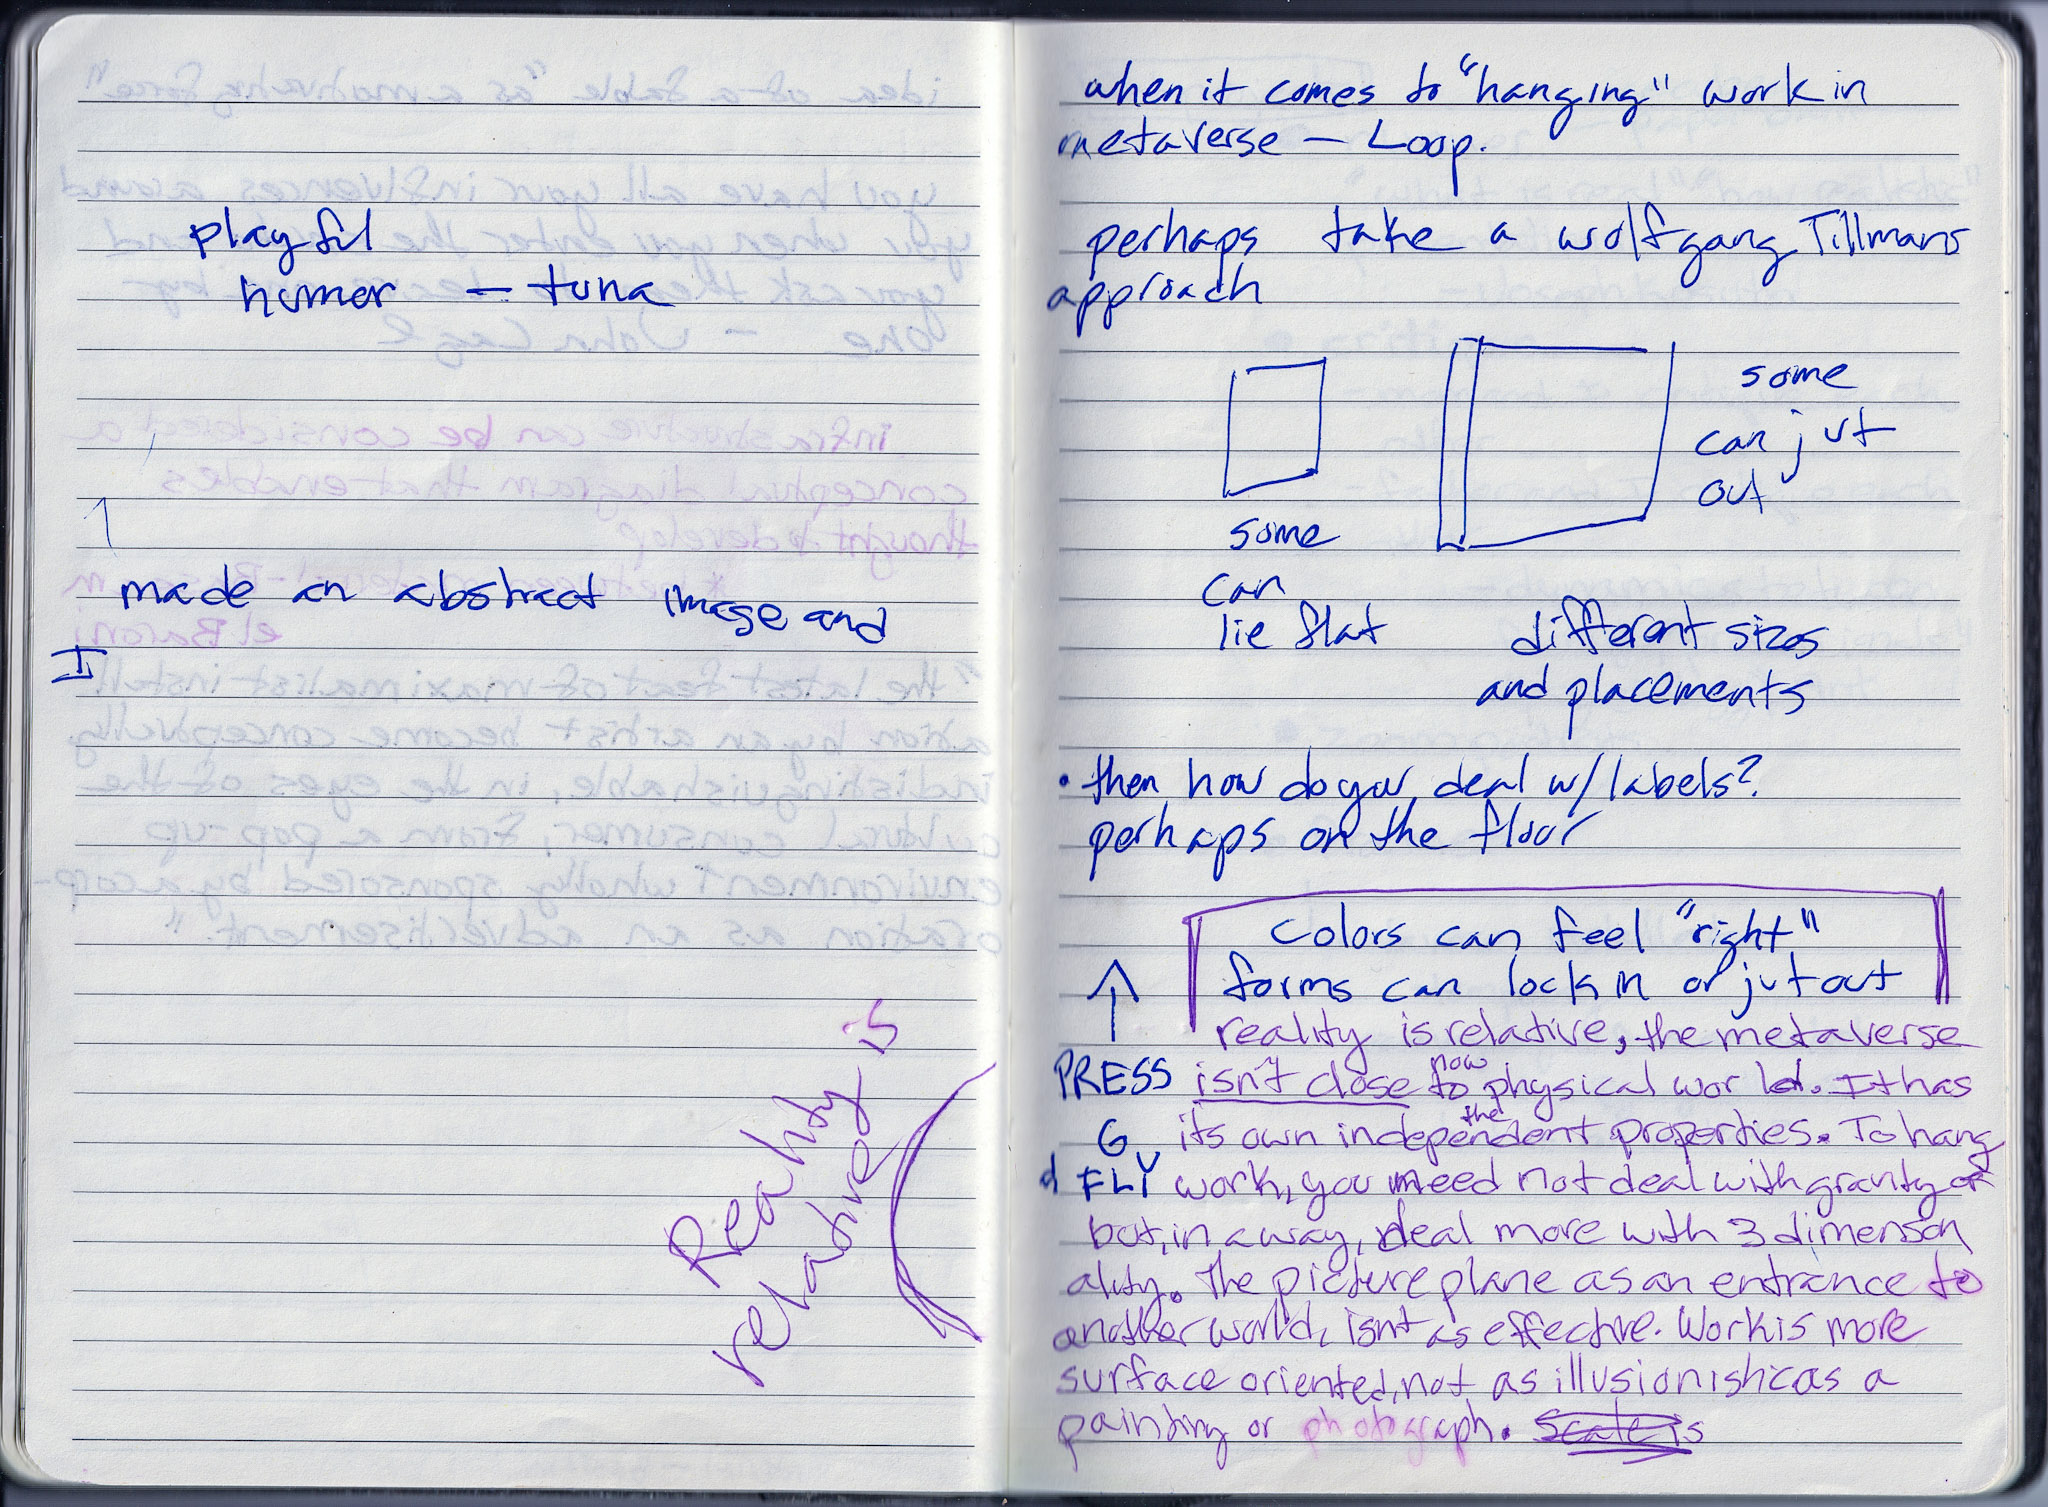 playful
humor – tuna
made an abstract image and
I
Reality is
relative
when it comes to "hanging" work in
metaverse – Loop.
perhaps take a wolfgang Tillmans
approach
some
can jut
out
some
can
lie flat
different sizes
and placements
• then how do you deal w/ labels?
perhaps on the floor
colors can feel "right"
forms can lock in or jut out
reality is relative, the metaverse
isn't close to now physical world. It has
its own independent the properties. To hang
work, you need not deal with gravity or
but, in a way, deal more with 3 dimenson
ality. The picture plane as an entrance to
another world, isnt as effective. Work is more
surface oriented, not as illusionistic as a
painting or photograph. Scale is
↑
PRESS
G
FLY